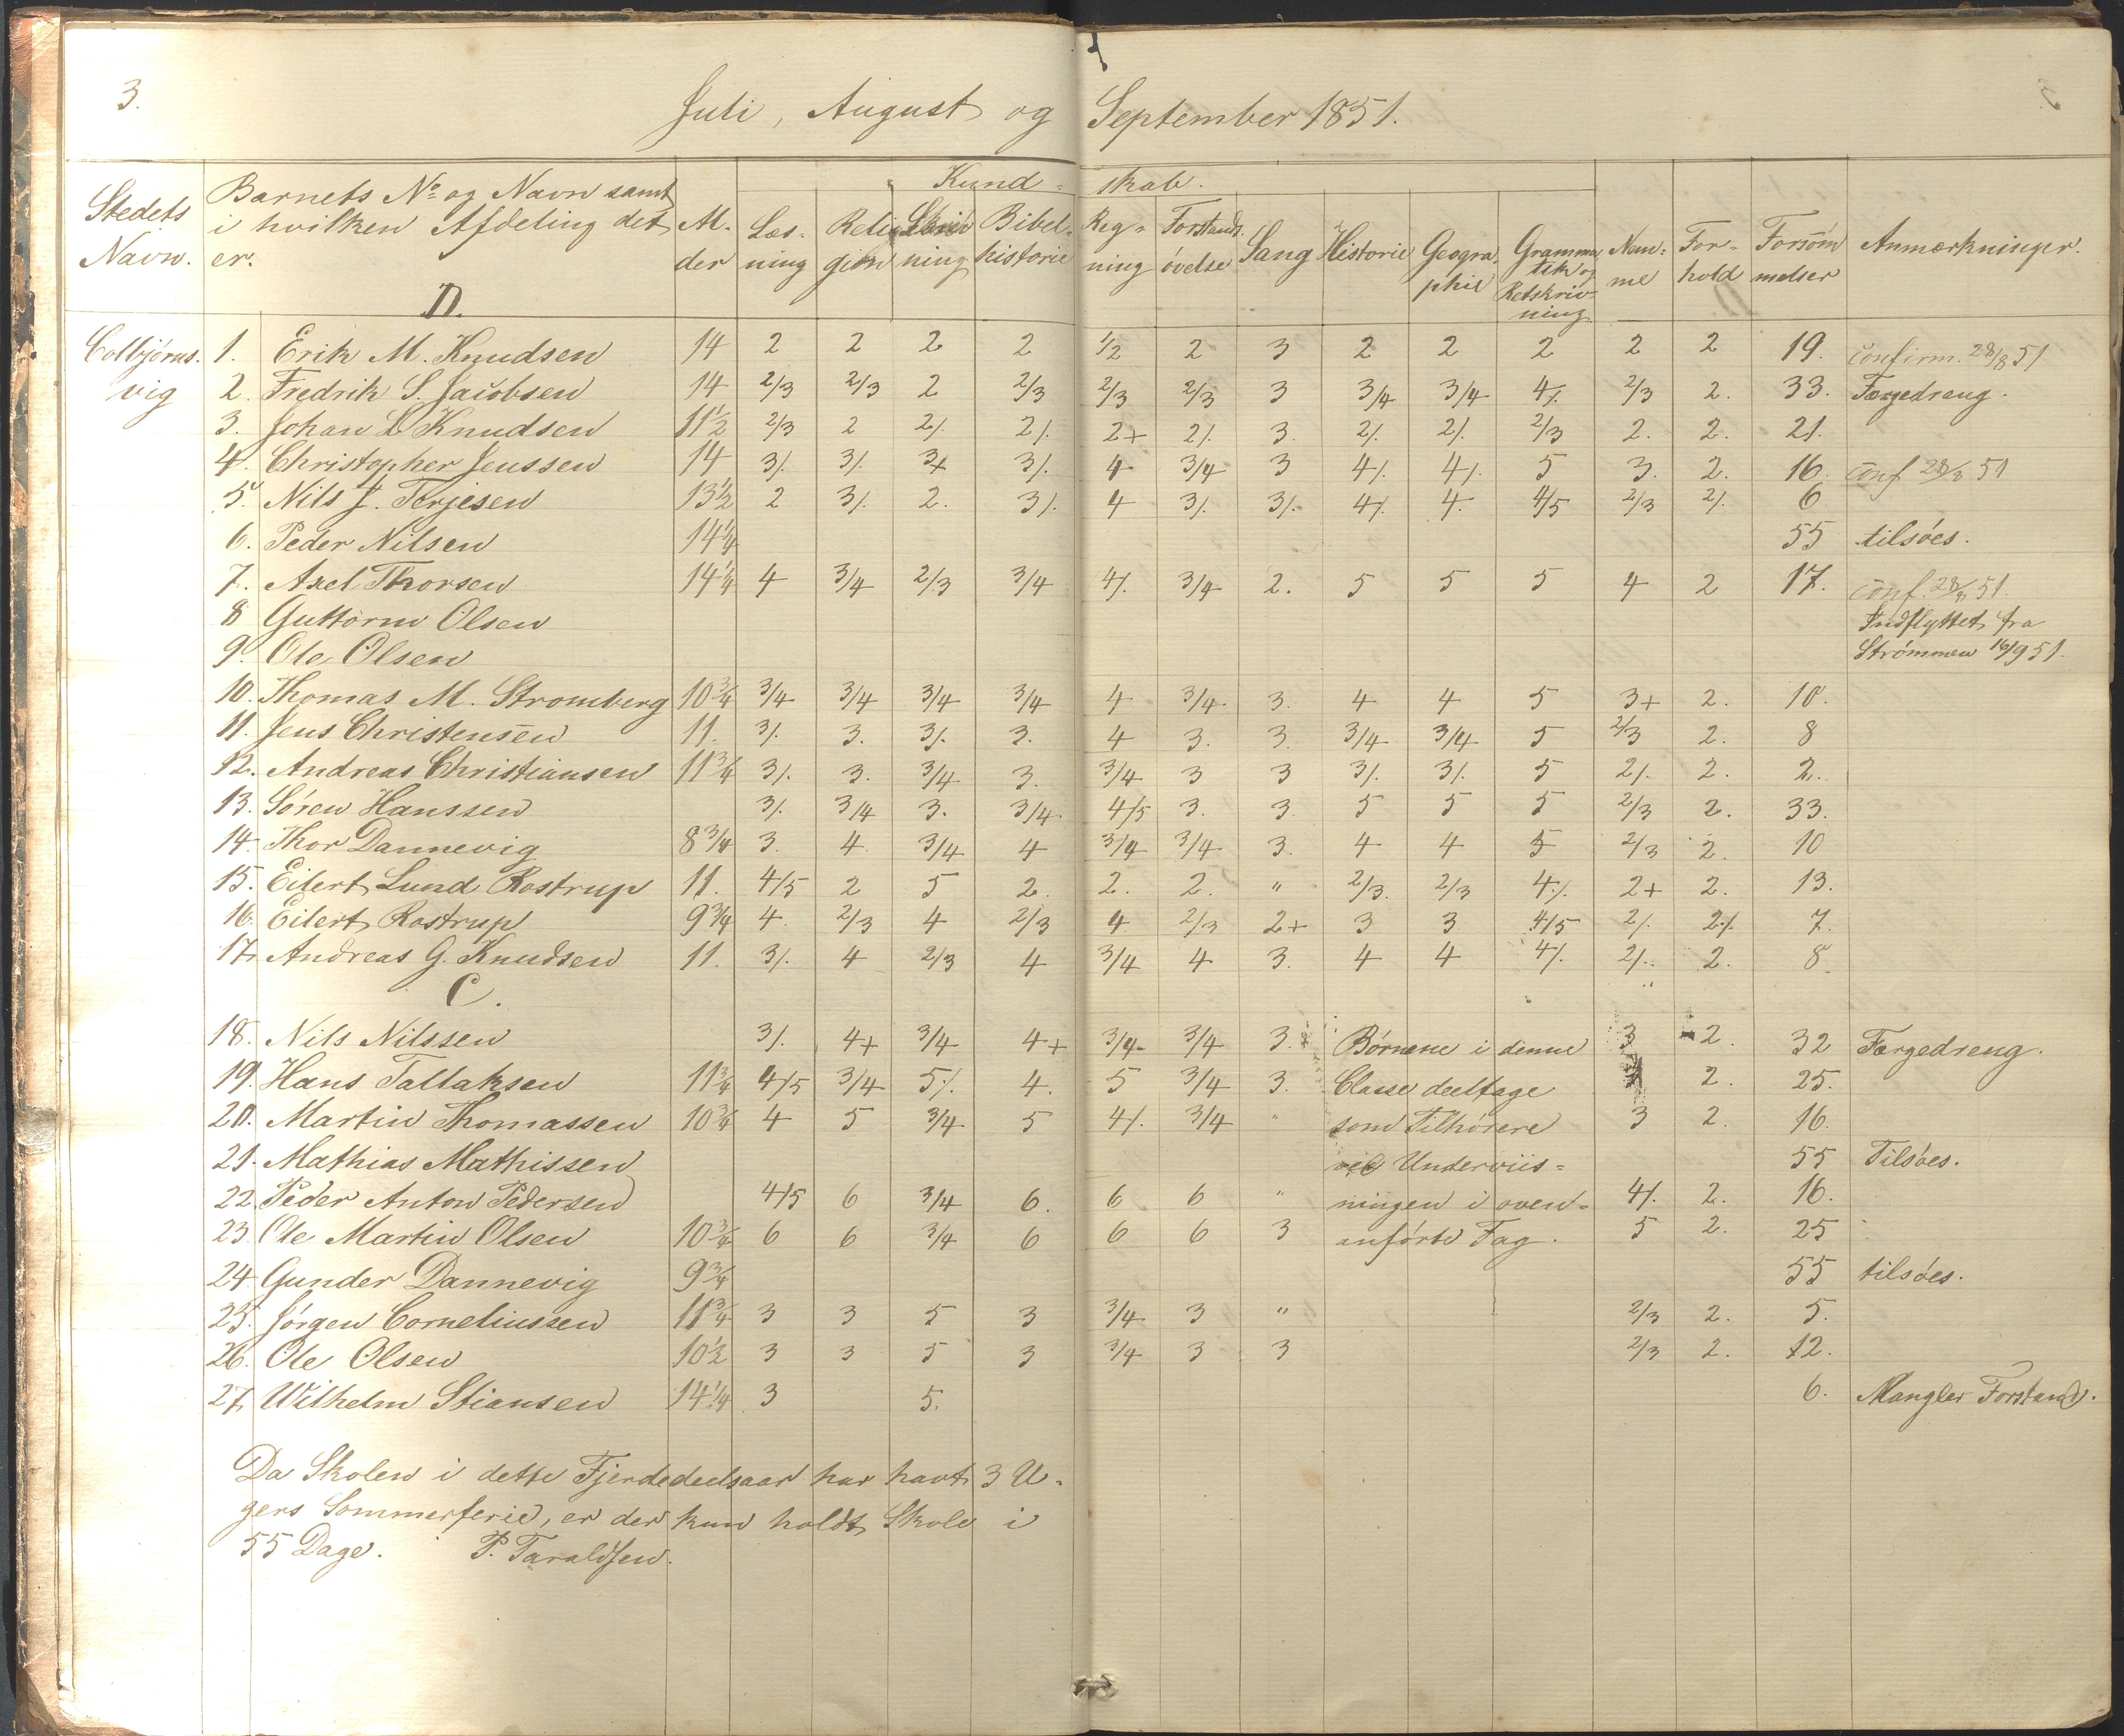 3.
Juli, August og September 1851.
Stedets Navn. | Barnets No og Navn samt i hvilken Afdeling det er. | Al-der | Kund-skab. | Læs-ning | Religion | Skriv ning | Bibel-historie | Reg-ning | Forstands-øvelse | Sang | Historie | Geogra-phie | Gramma-tik og Retskriv-ning | Nem-me | For-hold | Forsöm melser | Anmærkninger.
D.
Colbjørns-vig 1. Erik M. Knudsen 14 2 2 2 2 1/2 2 3 2 2 2 2 2 19. Confirm. 28/8 51
2. Fredrik S. Jacobsen 14 2/3 2/3 2 2/3 2/3 2/3 3 3/4 3/4 4/. 2/3 2. 33. Færgedreng.
3. Johan L Knudsen 11 1/2 2/3 2 2/. 2/. 2+ 2/. 3. 2/. 2/. 2/3 2. 2. 21.
4. Christopher Jenssen 14 3/. 3/. 3+ 3/. 4 3/4 3 4/. 4/. 5 3. 2. 16. conf 28/8 51
5. Nils J. Terjesen 13 1/2 2 3/. 2. 3/. 4 3/. 3/. 4/. 4. 4/5 2/3 2/. 6
6. Peder Nilsen 14 1/4 55 tilsøes.
7. Axel Thorsen 14 1/4 4 3/4 2/3 3/4 4/. 3/4 2. 5 5 5 4 2 17. conf. 28/8 51.
8 Guttorm Olsen Indflyttet fra
9. Ole Olsen Strømmen 16/9 51.
10. Thomas M. Stromberg 10 3/4 3/4 3/4 3/4 3/4 4 3/4 3. 4 4 5 3+ 2. 10.
11. Jens Christensen 11. 3/. 3. 3/. 3. 4 3. 3. 3/4 3/4 5 2/3 2. 8
12. Andreas Christiansen 11 3/4 3/. 3. 3/4 3. 3/4 3 3 3/. 3/. 5 2/. 2. 2.
13. Søren Hanssen 3/. 3/4 3. 3/4. 4/5 3. 3. 5 5 5 2/3 2. 33.
14 Thor Dannevig 8 3/4 3. 4. 3/4 4 3/4 3/4 3. 4 4 5 2/3 2. 10
15. Eilert Lund Rostrup 11. 4/5 2 5 2. 2. 2. " 2/3. 2/3 4/. 2+ 2. 13.
16. Eilert Rostrup 9 3/4 4. 2/3 4 2/3 4 2/3 2+ 3 3 4/5 2/. 2/. 7.
17. Andreas G. Knudsen 11. 3/. 4 2/3 4 3/4 4 3. 4 4 4/. 2/. 2. 8.
C.
18. Nils Nilssen 3/. 4+ 3/4 4+ 3/4 3/4 3. Børnene i denne 3 2. 32 Færgedreng.
19. Hans Tallaksen 11 3/4 4/5 3/4 5/. 4. 5 3/4 3. Classe deeltage 2. 25.
20. Martin Thomassen 10 3/4 4 5 3/4 5 4/. 3/4 " som Tilhørere 3 2. 16.
21. Mathias Mathissen ved Underviis= 55 Tilsøes.
22. Peder Anton Pedersen 4/5 6 3/4 6. 6 6 " ningen i oven= 4/. 2. 16.
23. Ole Martin Olsen 10 3/4 6 6 3/4 6 6 6 3 anførte Fag. 5 2. 25
24. Gunder Dannevig 9 3/4 55 tilsøes.
25. Jørgen Corneliussen 11 3/4 3 3 5 3 3/4 3 " 2/3 2. 5.
26. Ole Olsen 10 1/2 3 3 5 3 3/4 3 3 2/3 2. 12.
27. Wilhelm Stiansen 14 1/4 3 5. 6. Mangler Forstand.
Da Skolen i dette Fjerdedeelsaar har havt 3 U-
gers Sommerferie, er der kun holdt Skole i
55 Dage. P. Taraldsen.